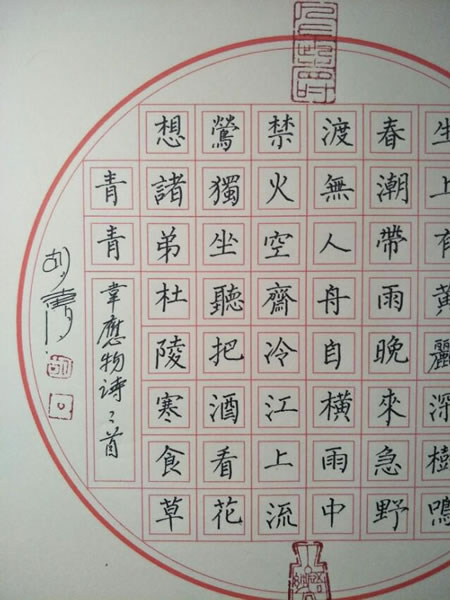 生上有黄麗深樹鳴
春潮帶雨晚來急野
渡無人舟自橫雨中
禁火空齋冷江上流
鶯獨坐聽把酒看花
想諸弟杜陵寒食草
青青
韋應物詩二首